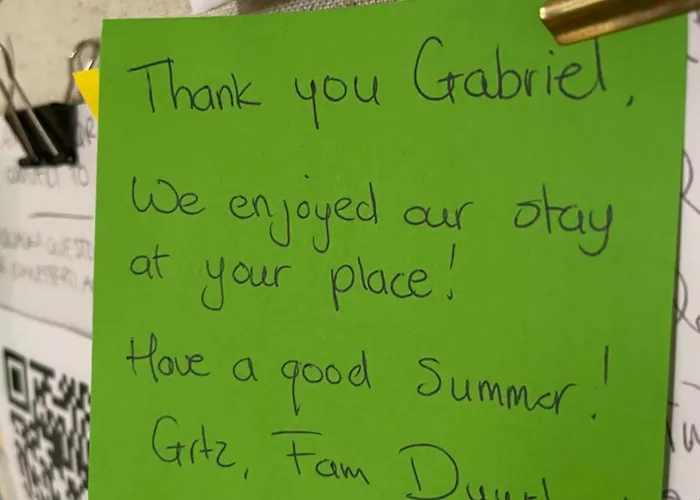 Thank you Gabriel,
We enjoyed our stay
at your place!
Have a good summer!
Grtz, Fam